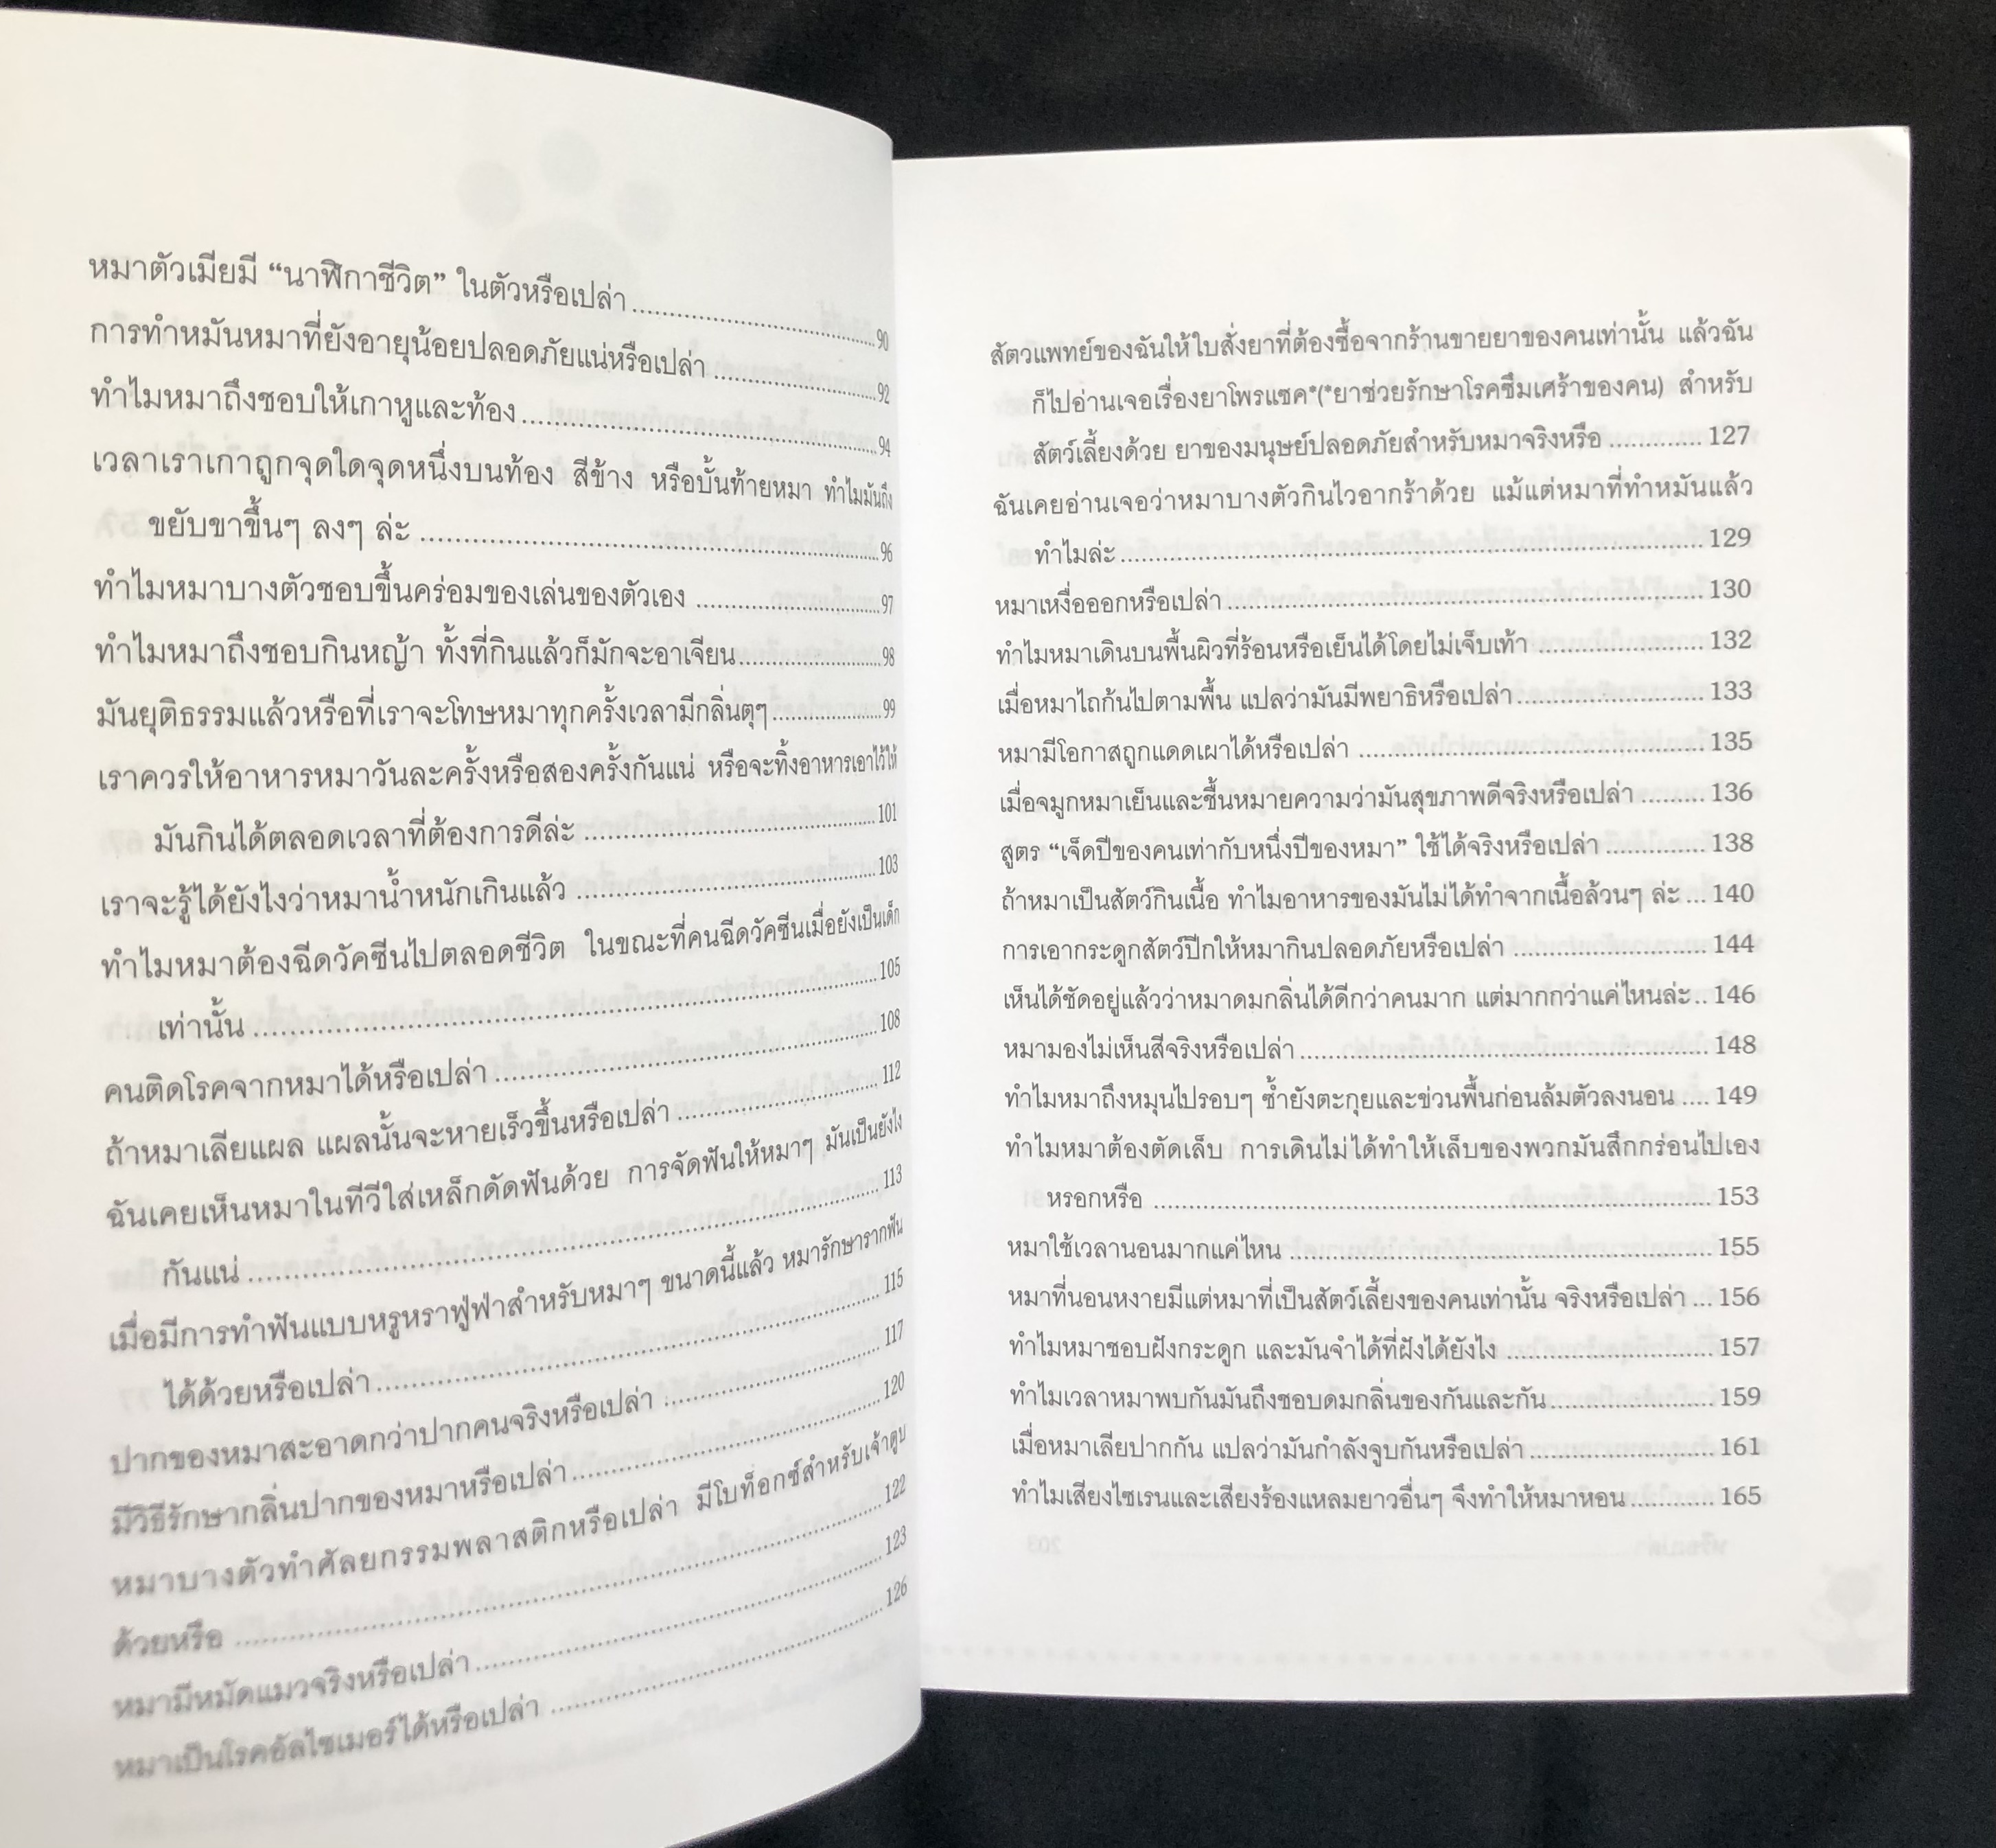 หมาตัวเมียมี “นาฬิกาชีวิต” ในตัวหรือเปล่า.............................90
การทำหมันหมาที่ยังอายุน้อยปลอดภัยแน่หรือเปล่า ....................92
ทำไมหมาถึงชอบให้เกาหูและท้อง..........................................94
เวลาเราเกาถูกจุดใดจุดหนึ่งบนท้อง สีข้าง หรือบั้นท้ายหมา ทำไมมันถึง
ขยับขาขึ้นๆ ลงๆ ล่ะ ......................................................96
ทำไมหมาบางตัวชอบขึ้นคร่อมของเล่นของตัวเอง ........................97
ทำไมหมาถึงชอบกินหญ้า ทั้งที่กินแล้วก็มักจะอาเจียน....................98
มันยุติธรรมแล้วหรือที่เราจะโทษหมาทุกครั้งเวลามีกลิ่นตุๆ................99
เราควรให้อาหารหมาวันละครั้งหรือสองครั้งกันแน่ หรือจะทิ้งอาหารเอาไว้ให้
มันกินได้ตลอดเวลาที่ต้องการดีล่ะ .....................................101
เราจะรู้ได้ยังไงว่าหมาน้ำหนักเกินแล้ว .....................................103
ทำไมหมาต้องฉีดวัคซีนไปตลอดชีวิต ในขณะที่คนฉีดวัคซีนเมื่อยังเป็นเด็ก
เท่านั้น ......................................................................105
คนติดโรคจากหมาได้หรือเปล่า ..............................................108
ถ้าหมาเลียแผล แผลนั้นจะหายเร็วขึ้นหรือเปล่า ..........................112
ฉันเคยเห็นหมาในทีวีใส่เหล็กดัดฟันด้วย การจัดฟันให้หมาๆ มันเป็นยังไง
กันแน่ .......................................................................113
เมื่อมีการทำฟันแบบหรูหราฟู่ฟ่าสำหรับหมาๆ ขนาดนี้แล้ว หมารักษารากฟัน
ได้ด้วยหรือเปล่า...........................................................115
ปากของหมาสะอาดกว่าปากคนจริงหรือเปล่า ............................117
มีวิธีรักษากลิ่นปากของหมาหรือเปล่า.......................................120
หมาบางตัวทำศัลยกรรมพลาสติกหรือเปล่า มีโบท็อกซ์สำหรับเจ้าตูบ
ด้วยหรือ .....................................................................122
หมามีหมัดแมวจริงหรือเปล่า.................................................123
หมาเป็นโรคอัลไซเมอร์ได้หรือเปล่า .........................................126
สัตวแพทย์ของฉันให้ใบสั่งยาที่ต้องซื้อจากร้านขายยาของคนเท่านั้น แล้วฉัน
ก็ไปอ่านเจอเรื่องยาโพรแซค*(*ยาช่วยรักษาโรคซึมเศร้าของคน) สำหรับ
สัตว์เลี้ยงด้วย ยาของมนุษย์ปลอดภัยสำหรับหมาจริงหรือ ............. 127
ฉันเคยอ่านเจอว่าหมาบางตัวกินไวอากร้าด้วย แม้แต่หมาที่ทำหมันแล้ว
ทำไมล่ะ................................................................................ 129
หมาเหงื่อออกหรือเปล่า................................................................ 130
ทำไมหมาเดินบนพื้นผิวที่ร้อนหรือเย็นได้โดยไม่เจ็บเท้า ....................... 132
เมื่อหมาไถก้นไปตามพื้น แปลว่ามันมีพยาธิหรือเปล่า......................... 133
หมามีโอกาสถูกแดดเผาได้หรือเปล่า ............................................... 135
เมื่อจมูกหมาเย็นและชื้นหมายความว่ามันสุขภาพดีจริงหรือเปล่า ......... 136
สูตร “เจ็ดปีของคนเท่ากับหนึ่งปีของหมา” ใช้ได้จริงหรือเปล่า .............. 138
ถ้าหมาเป็นสัตว์กินเนื้อ ทำไมอาหารของมันไม่ได้ทำจากเนื้อล้วนๆ ล่ะ ... 140
การเอากระดูกสัตว์ปีกให้หมากินปลอดภัยหรือเปล่า ........................... 144
เห็นได้ชัดอยู่แล้วว่าหมาดมกลิ่นได้ดีกว่าคนมาก แต่มากกว่าแค่ไหนล่ะ.. 146
หมามองไม่เห็นสีจริงหรือเปล่า....................................................... 148
ทำไมหมาถึงหมุนไปรอบๆ ซ้ำยังตะกุยและข่วนพื้นก่อนล้มตัวลงนอน .... 149
ทำไมหมาต้องตัดเล็บ การเดินไม่ได้ทำให้เล็บของพวกมันสึกกร่อนไปเอง
หรอกหรือ ............................................................................. 153
หมาใช้เวลานอนมากแค่ไหน ......................................................... 155
หมาที่นอนหงายมีแต่หมาที่เป็นสัตว์เลี้ยงของคนเท่านั้น จริงหรือเปล่า ... 156
ทำไมหมาชอบฝังกระดูก และมันจำได้ที่ฝังได้ยังไง ............................ 157
ทำไมเวลาหมาพบกันมันถึงชอบดมกลิ่นของกันและกัน....................... 159
เมื่อหมาเลียปากกัน แปลว่ามันกำลังจูบกันหรือเปล่า......................... 161
ทำไมเสียงไซเรนและเสียงร้องแหลมยาวอื่นๆ จึงทำให้หมาหอน............ 165